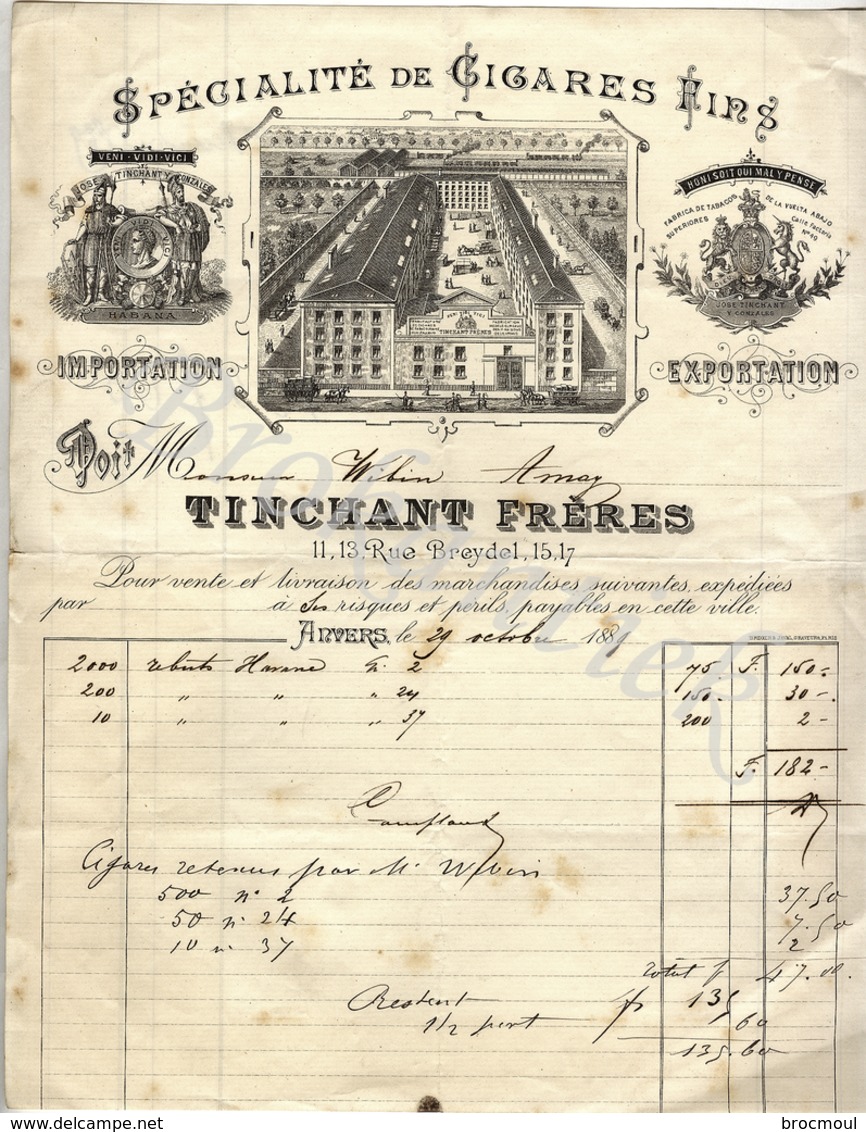 SPÉCIALITÉ DE CIGARES FINS
VENI · VIDI · VICI
JOSE TINCHANT Y GONZALES
VENI VIDI VICI
HABANA
IMPORTATION
VENI VIDI VICI
TINCHANT FRÈRES
HONI SOIT QUI MAL Y PENSE
FABRICA DE TABACOS
SUPERIORES
DE LA VUELTA ABAJO
Calle Factoria
No 40
JOSE TINCHANT
Y GONZALES
EXPORTATION
Doit Monsieur Wibin Amay
TINCHANT FRÈRES
11, 13, Rue Breydel, 15, 17
Pour vente et livraison des marchandises suivantes, expédiées
par à ses risques et périls, payables en cette ville.
ANVERS, le 29 octobre 1889
2000 rebuts Havane No 2 75. F. 150-
200 " " " 24 150- 30-
10 " " " 37 200 2-
F. 182-
Comptant
Cigares retenus par Mr Wibin
500 no 2 37.50
50 no 24 7.50
10 no 37 2
Total f 47.00
Restent fr 135
1/2 port 60
135.60
Brokantiek
delcampe.net
brocmoul